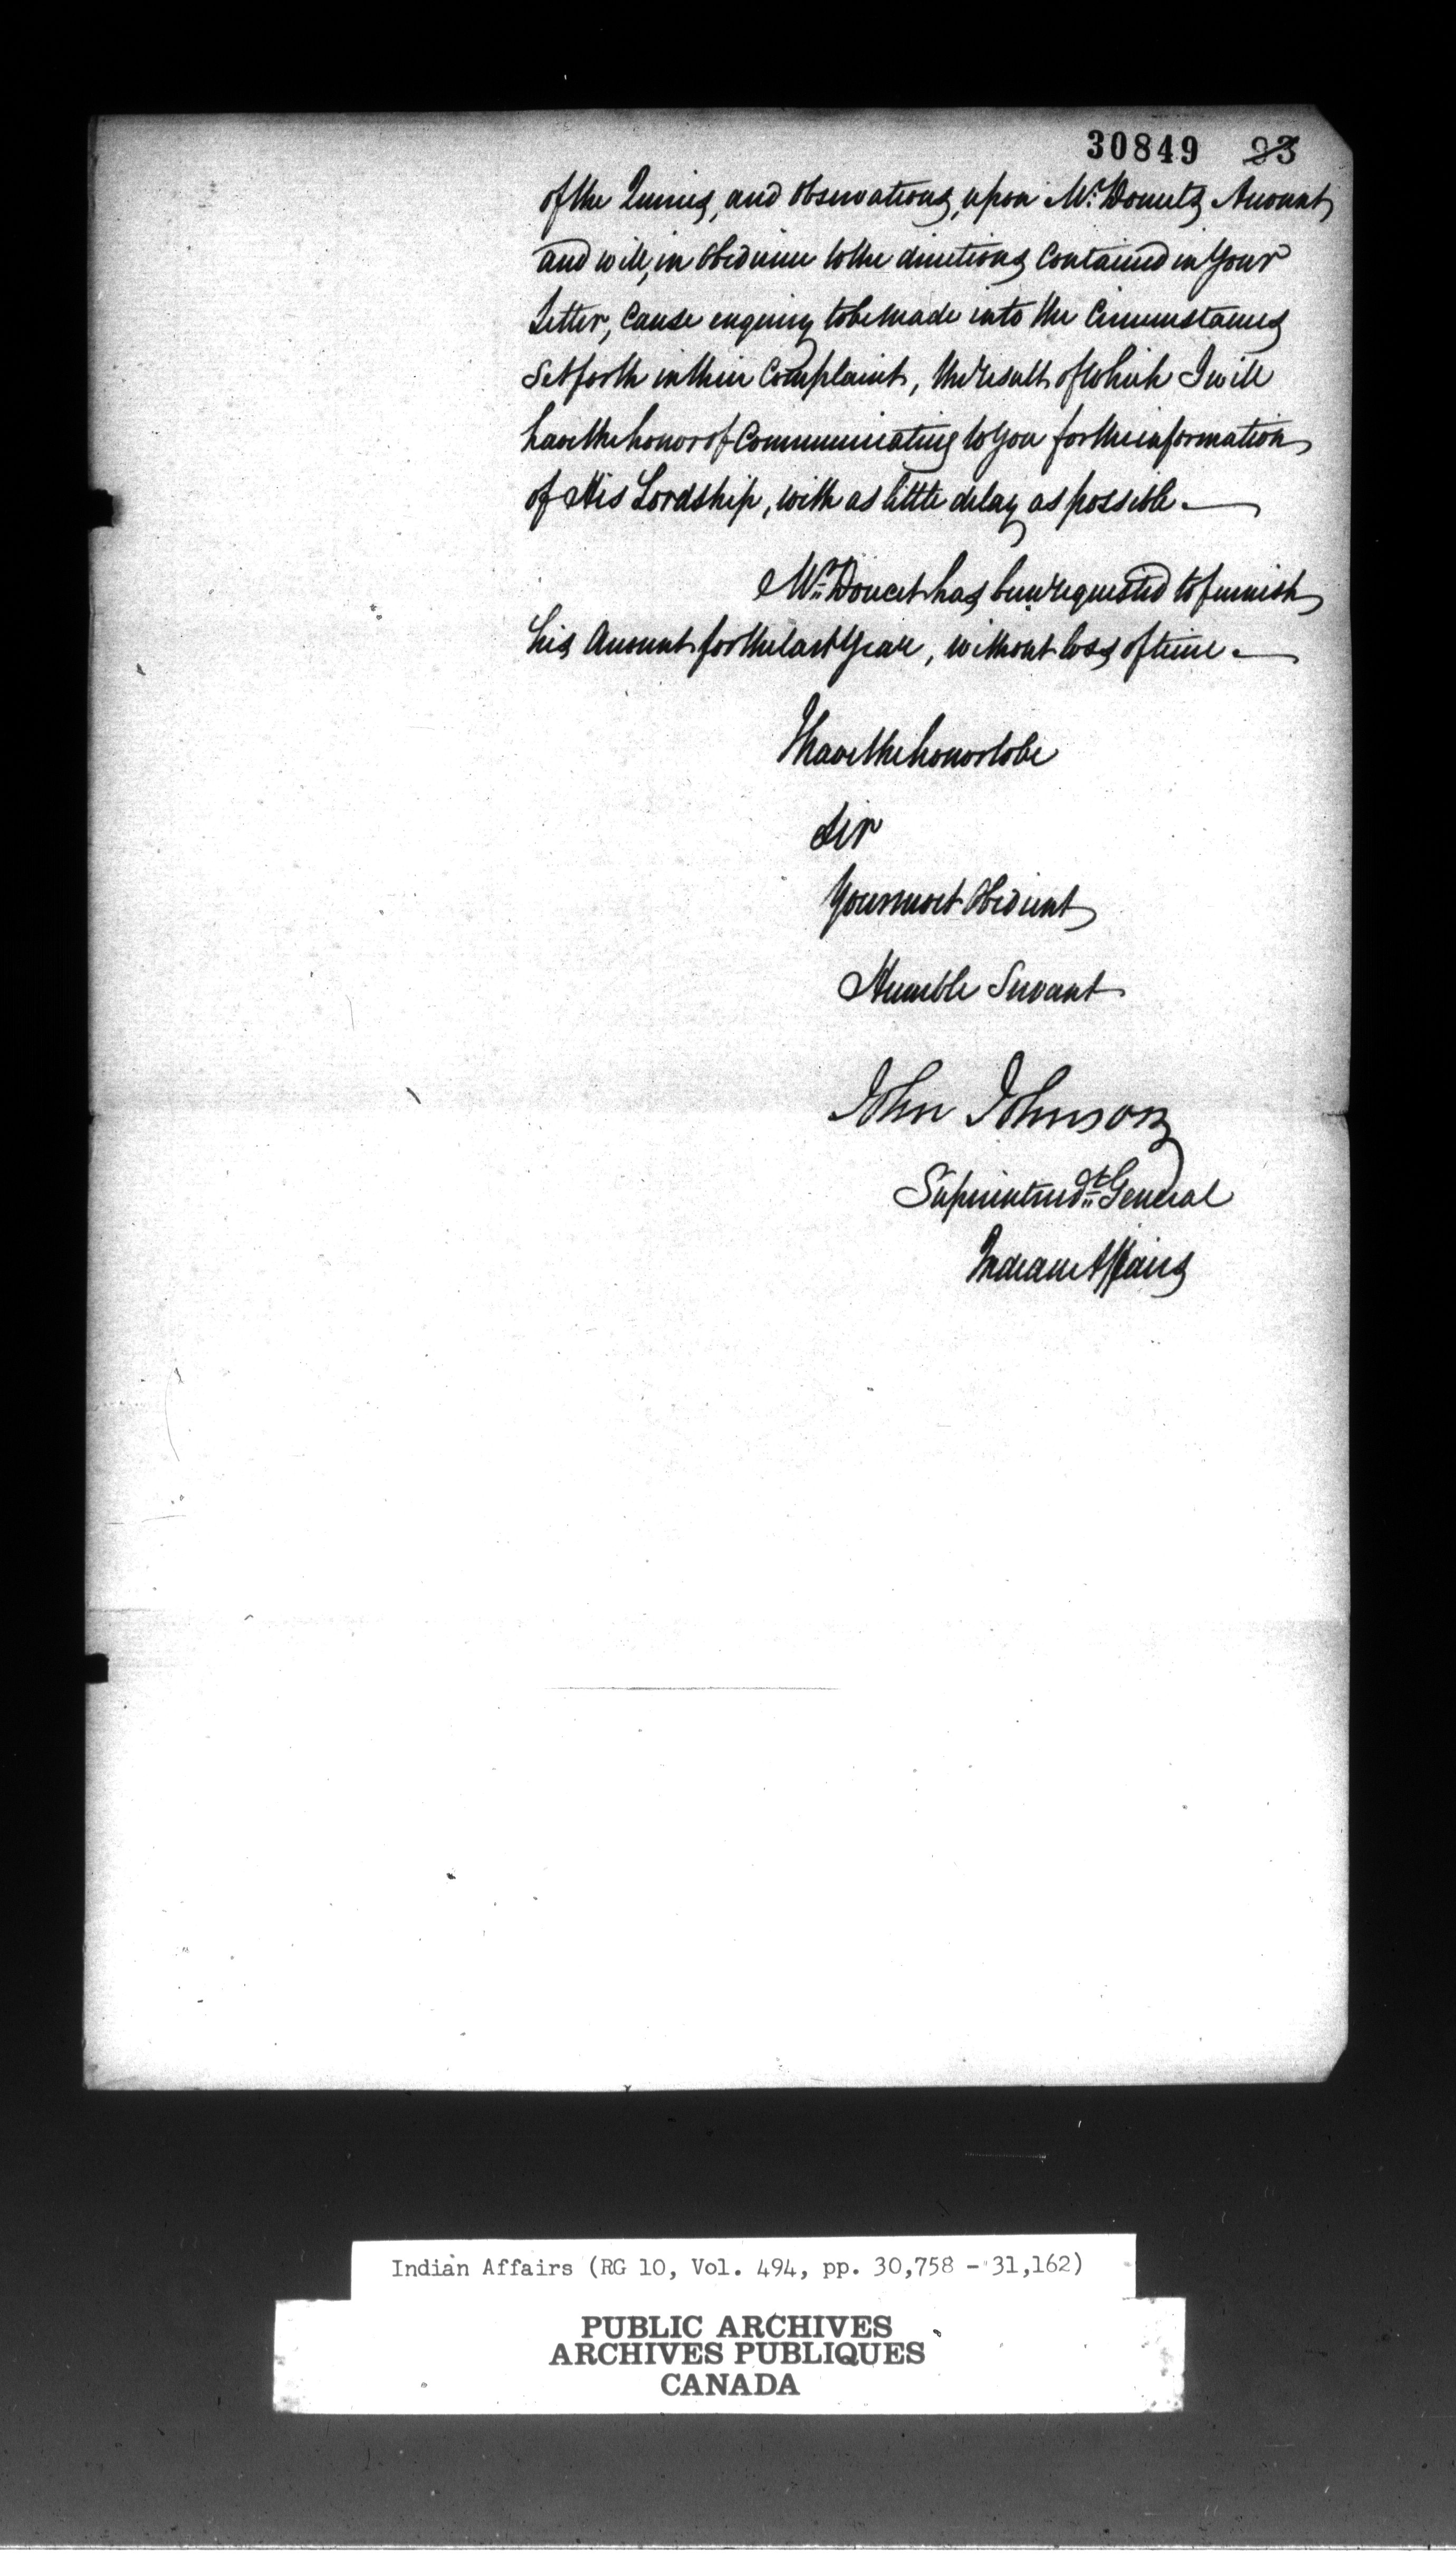 30849 93
of the Queries, and Observations, upon Mr. Doucets Account
and will, in Obedience to the directions Contained in Your
Letter, Cause enquiry to be made into the Circumstances
Set forth in their Complaint, the result of which I will
have the honor of Communicating to You for the information
of His Lordship, with as little delay as possible.
Mr. Doucet has been requested to furnish
his Account for the last Year, without loss of time.
I have the honor to be
Sir
Your most Obedient
Humble Servant
John Johnson
Superintendt. General
Indian Affairs
Indian Affairs (RG 10, Vol. 494, pp. 30,758 - 31,162)
PUBLIC ARCHIVES
ARCHIVES PUBLIQUES
CANADA